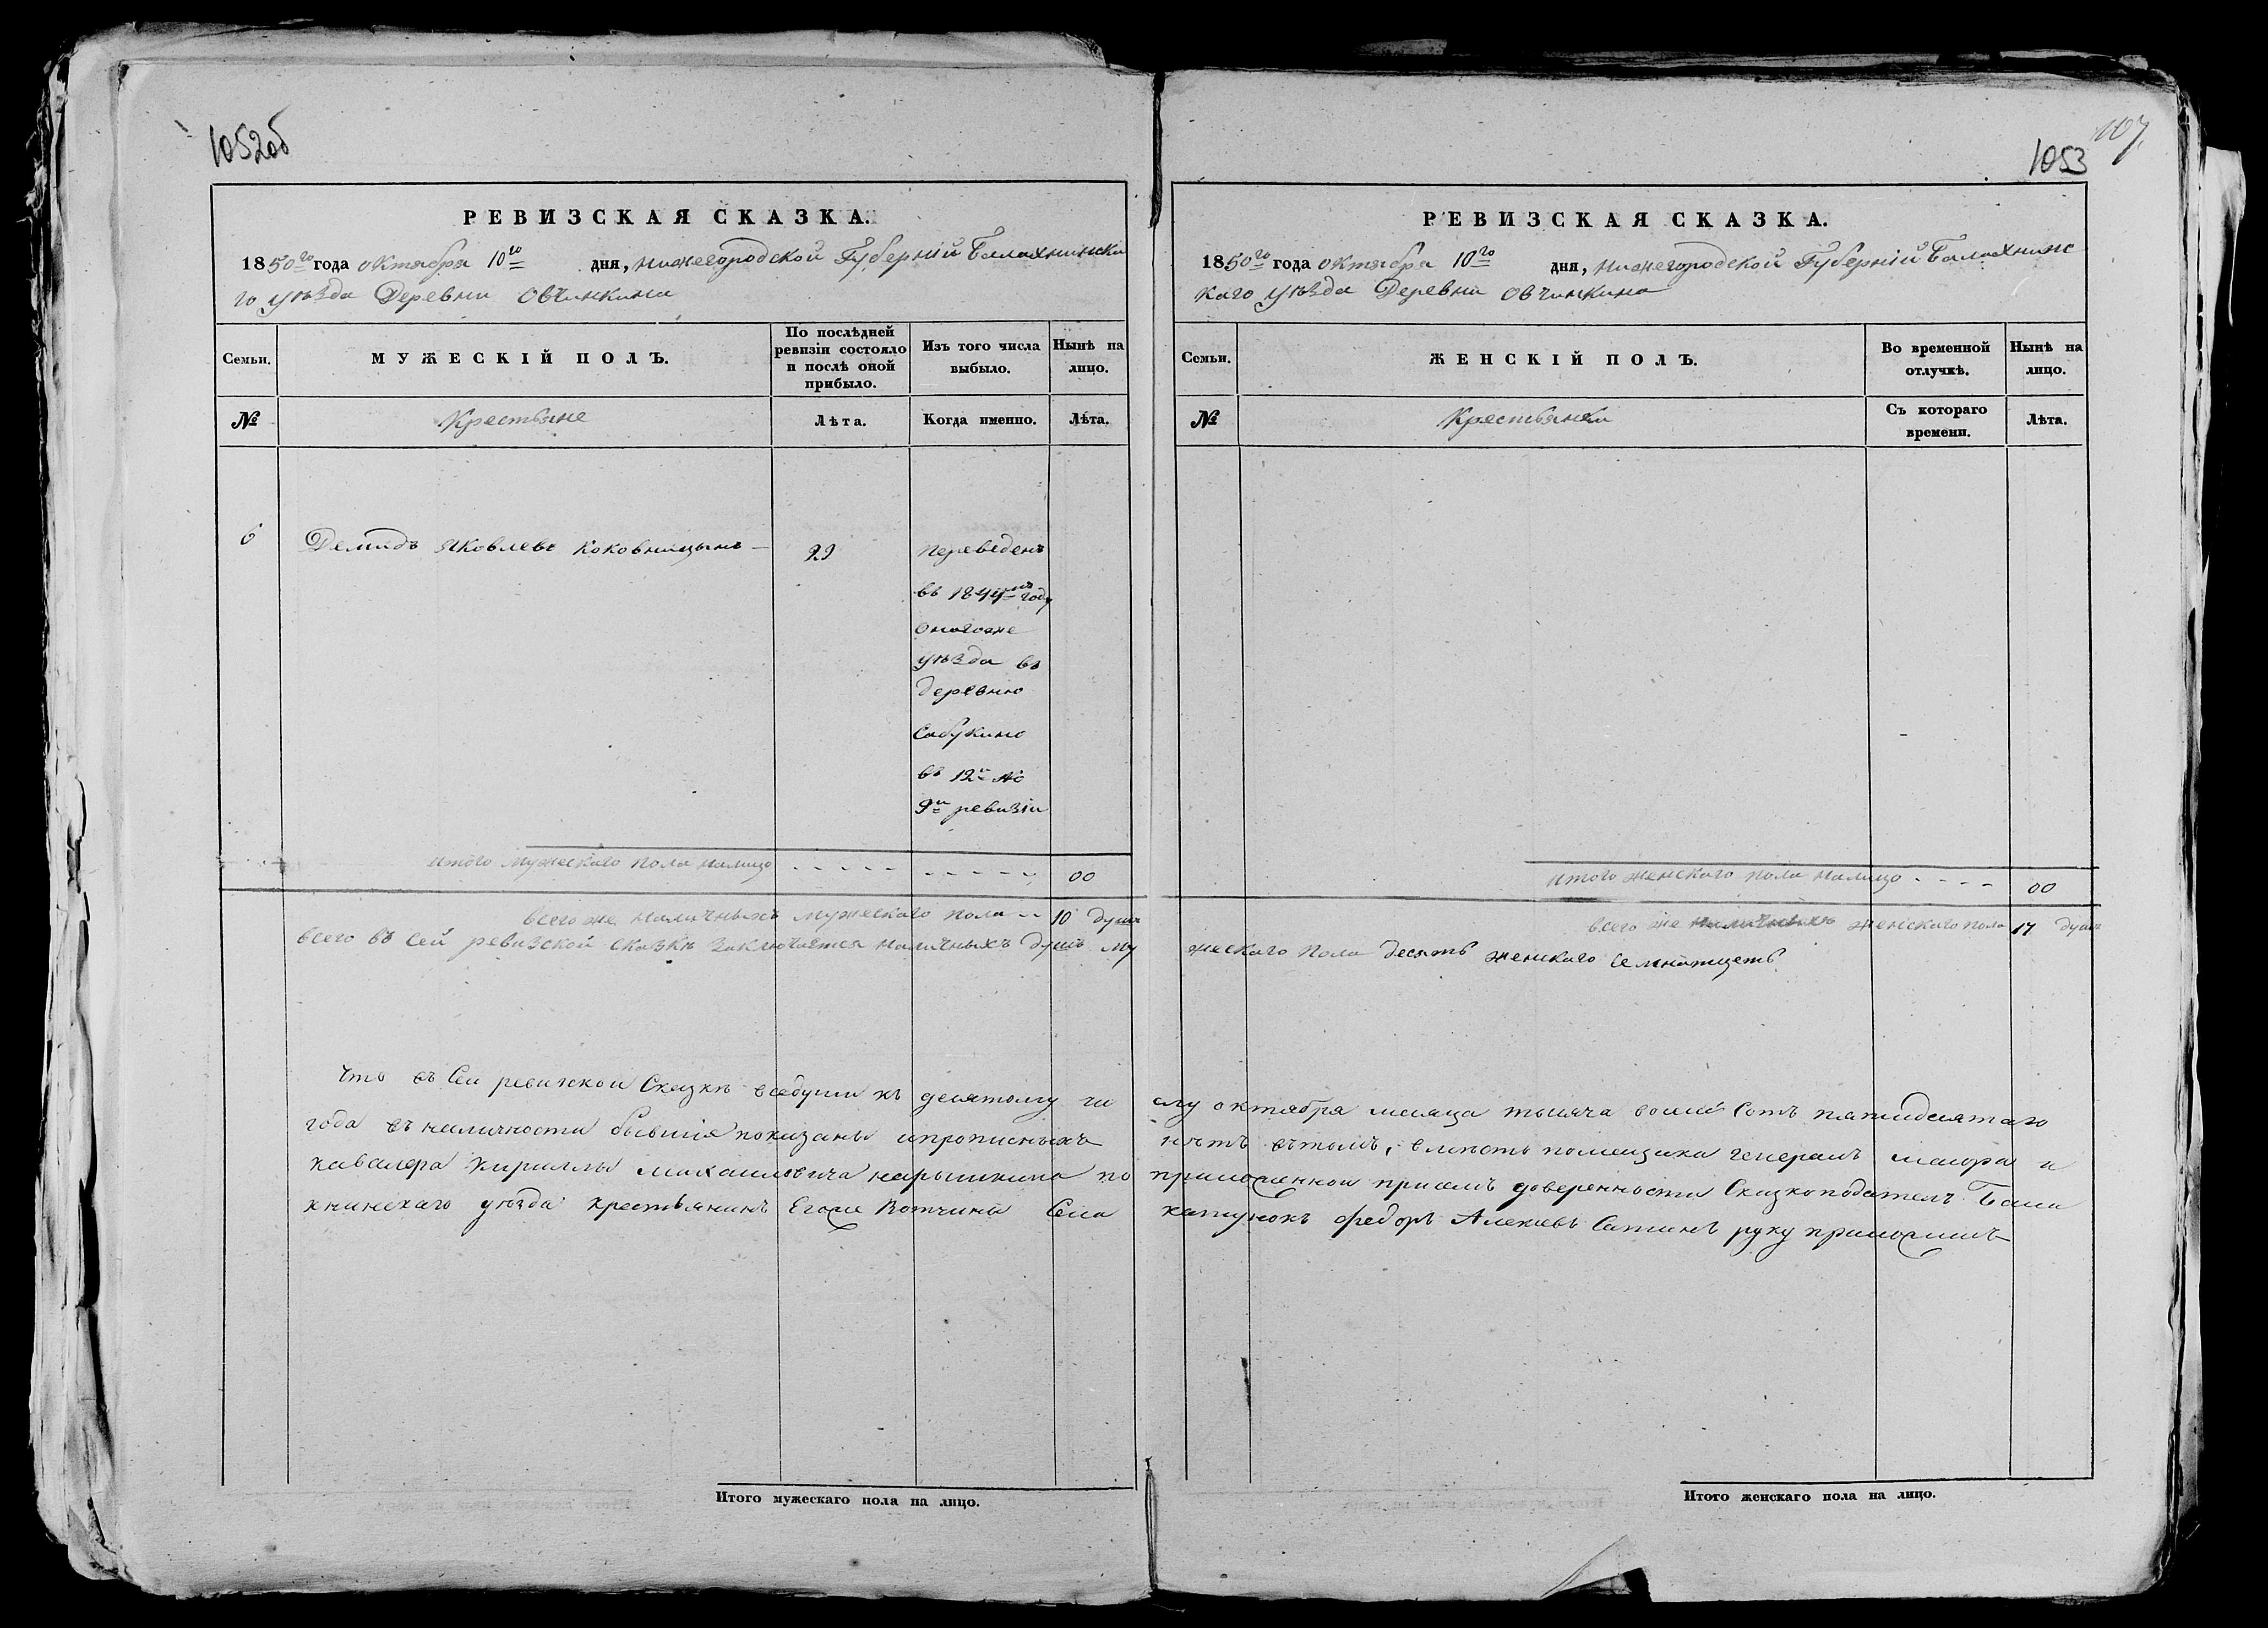 1052об
РЕВИЗСКАЯ СКАЗКА.
1850го года октября 10го дня, нижегородской Губерній Балахнинска
го уѣзда Деревни Овчинкина
Семьи. МУЖЕСКІЙ ПОЛЪ. По послѣдней ревизіи состояло и послѣ оной прибыло. Изъ того числа выбыло. Нынѣ на лицо.
№ Крестьяне Лѣта. Когда именно. Лѣта.
6 Демидъ Яковлевъ Коковницынъ 29 переведенъ
въ 1844мъ году
оногоже
уѣзда въ
деревню
Сабукино
въ 12й №
9й ревизіи
итого мужескаго пола налицо - - - - - - - - - - 00
всего же наличныхъ мужескаго пола -- 10 душъ
всего въ сей ревизской сказкѣ заключается наличныхъ душъ му
Что въ Сеи ревизскои Сказкѣ вседуши къ десятому чи
года въ наличности бывшія показаны ипрописныхъ
кавалера Кириллы Михаиловича нарышкина по
хнинскаго уѣзда крестьянинъ Егоже Вотчины Села
Итого мужескаго пола на лицо.
107
1053
РЕВИЗСКАЯ СКАЗКА.
1850го года октября 10го дня, нижегородской Губерній Балахнинс
каго уѣзда Деревни Овчинкина
Семьи. ЖЕНСКІЙ ПОЛЪ. Во временной отлучкѣ. Нынѣ на лицо.
№ Крестьянки Съ котораго времени. Лѣта.
итого женскаго пола налицо - - - - 00
всего же наличныхъ женскаго пола 17 душъ
жескаго пола десять женскаго семнатцеть
слу октября месяца тысяча восемь Сотъ пятидесятаго
нѣтъ вътомъ, вмѣсто помещика генералъ маиора и
приложеннои присемъ доверенности Сказкоподатель Бала
катунокъ Федоръ Алексѣевъ Сатинъ руку приложилъ
Итого женскаго пола на лицо.